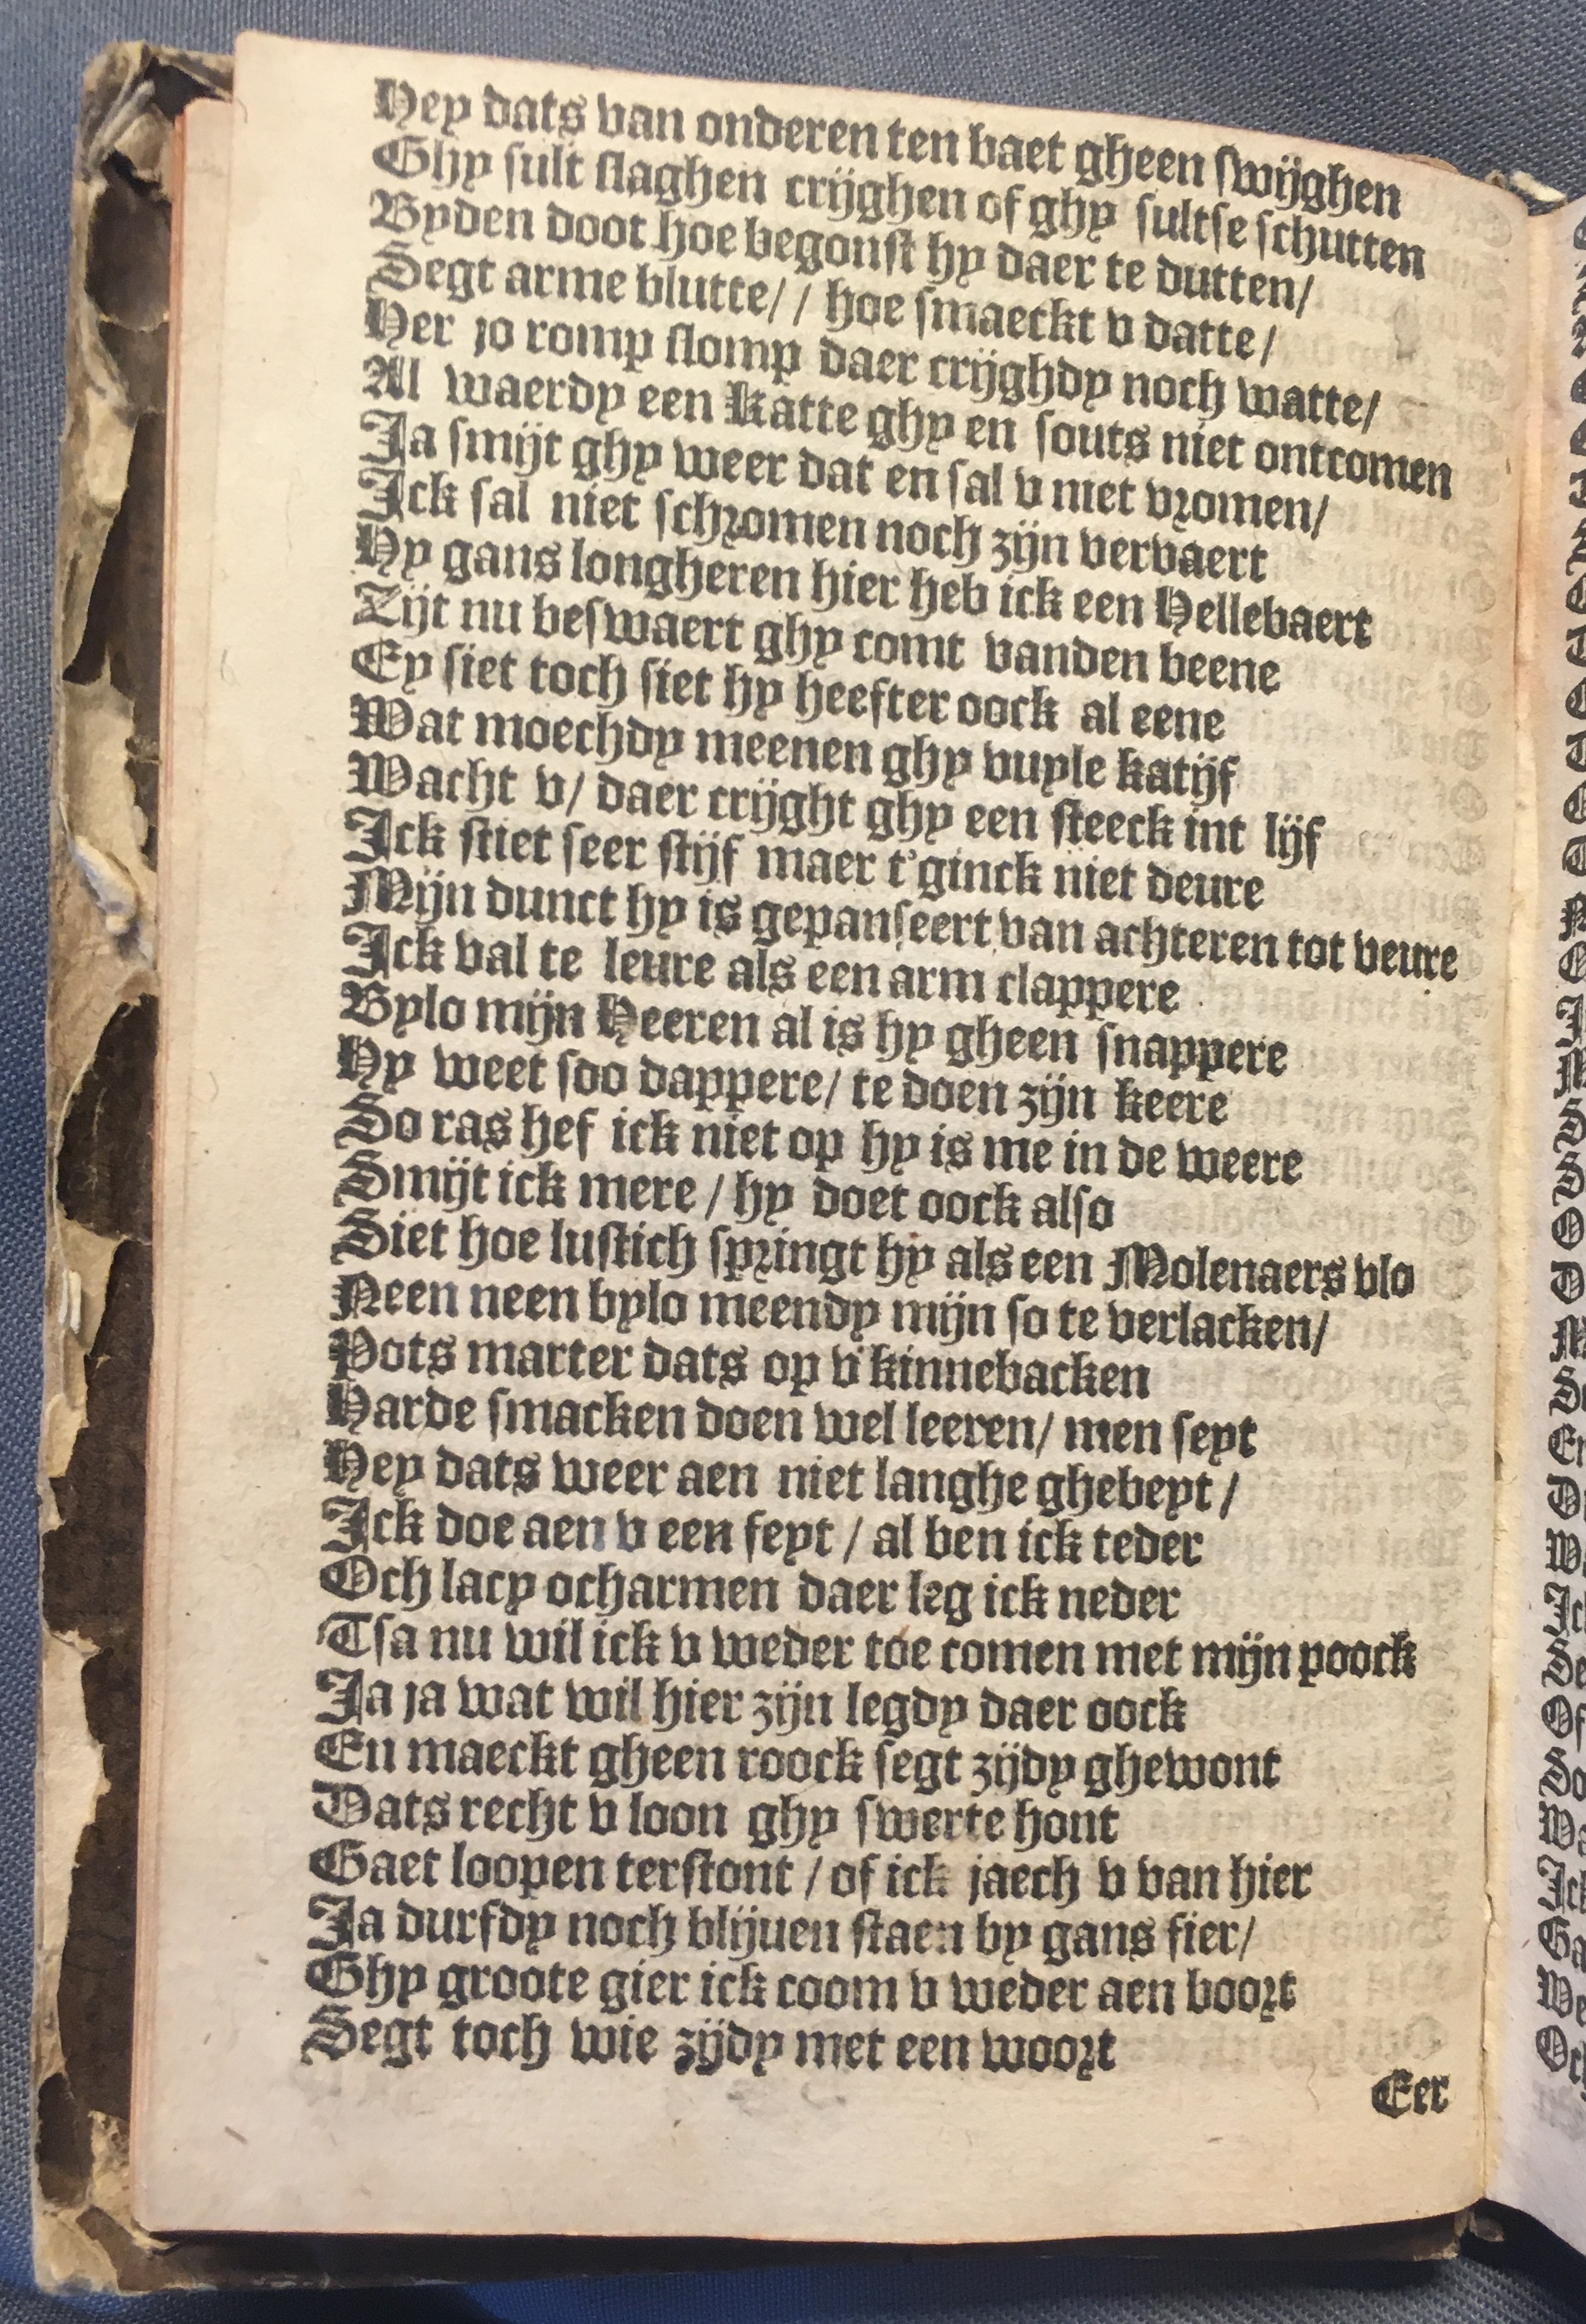 Hey dats van onderen ten baet gheen swijghen
Ghy sult slaghen crijghen of ghy sultse schutten
Byden doot hoe begonst hy daer te dutten/
Segt arme blutte// hoe smaeckt v datte/
Her jo romp slomp daer crijghdy noch watte/
Al waerdy een Katte ghy en souts niet ontcomen
Ja smijt ghy weer dat en sal v niet vromen/
Ick sal niet schromen noch zijn vervaert
Hy gans longheren hier heb ick een Hellebaert
Zijt nu beswaert ghy comt vanden beene
Ey siet toch siet hy heefter oock al eene
Wat moechdy meenen ghy vuyle katijf
Wacht v/ daer crijght ghy een steeck int lijf
Ick stiet seer stijf maer t'ginck niet deure
Mijn dunct hy is gepanseert van achteren tot veure
Ick val te leure als een arm clappere
Bylo mijn Heeren al is hy gheen snappere
Hy weet soo dappere/ te doen zijn keere
So ras hef ick niet op hy is me in de weere
Smijt ick mere / hy doet oock also
Siet hoe lustich springt hy als een Molenaers vlo
Neen neen bylo meendy mijn so te verlacken/
Pots marter dats op v kinnebacken
Harde smacken doen wel leeren/ men seyt
Hey dats weer aen niet langhe ghebeyt /
Ick doe aen v een feyt / al ben ick teder
Och lacy ocharmen daer leg ick neder
Tsa nu wil ick v weder toe comen met mijn poock
Ja ja wat wil hier zijn legdy daer oock
En maeckt gheen roock segt zijdy ghewont
Dats recht v loon ghy swerte hont
Gaet loopen terstont / of ick jaech v van hier
Ja durfdy noch blijuen staen by gans fier/
Ghy groote gier ick coom v weder aen boort
Segt toch wie zijdy met een woort
Eer